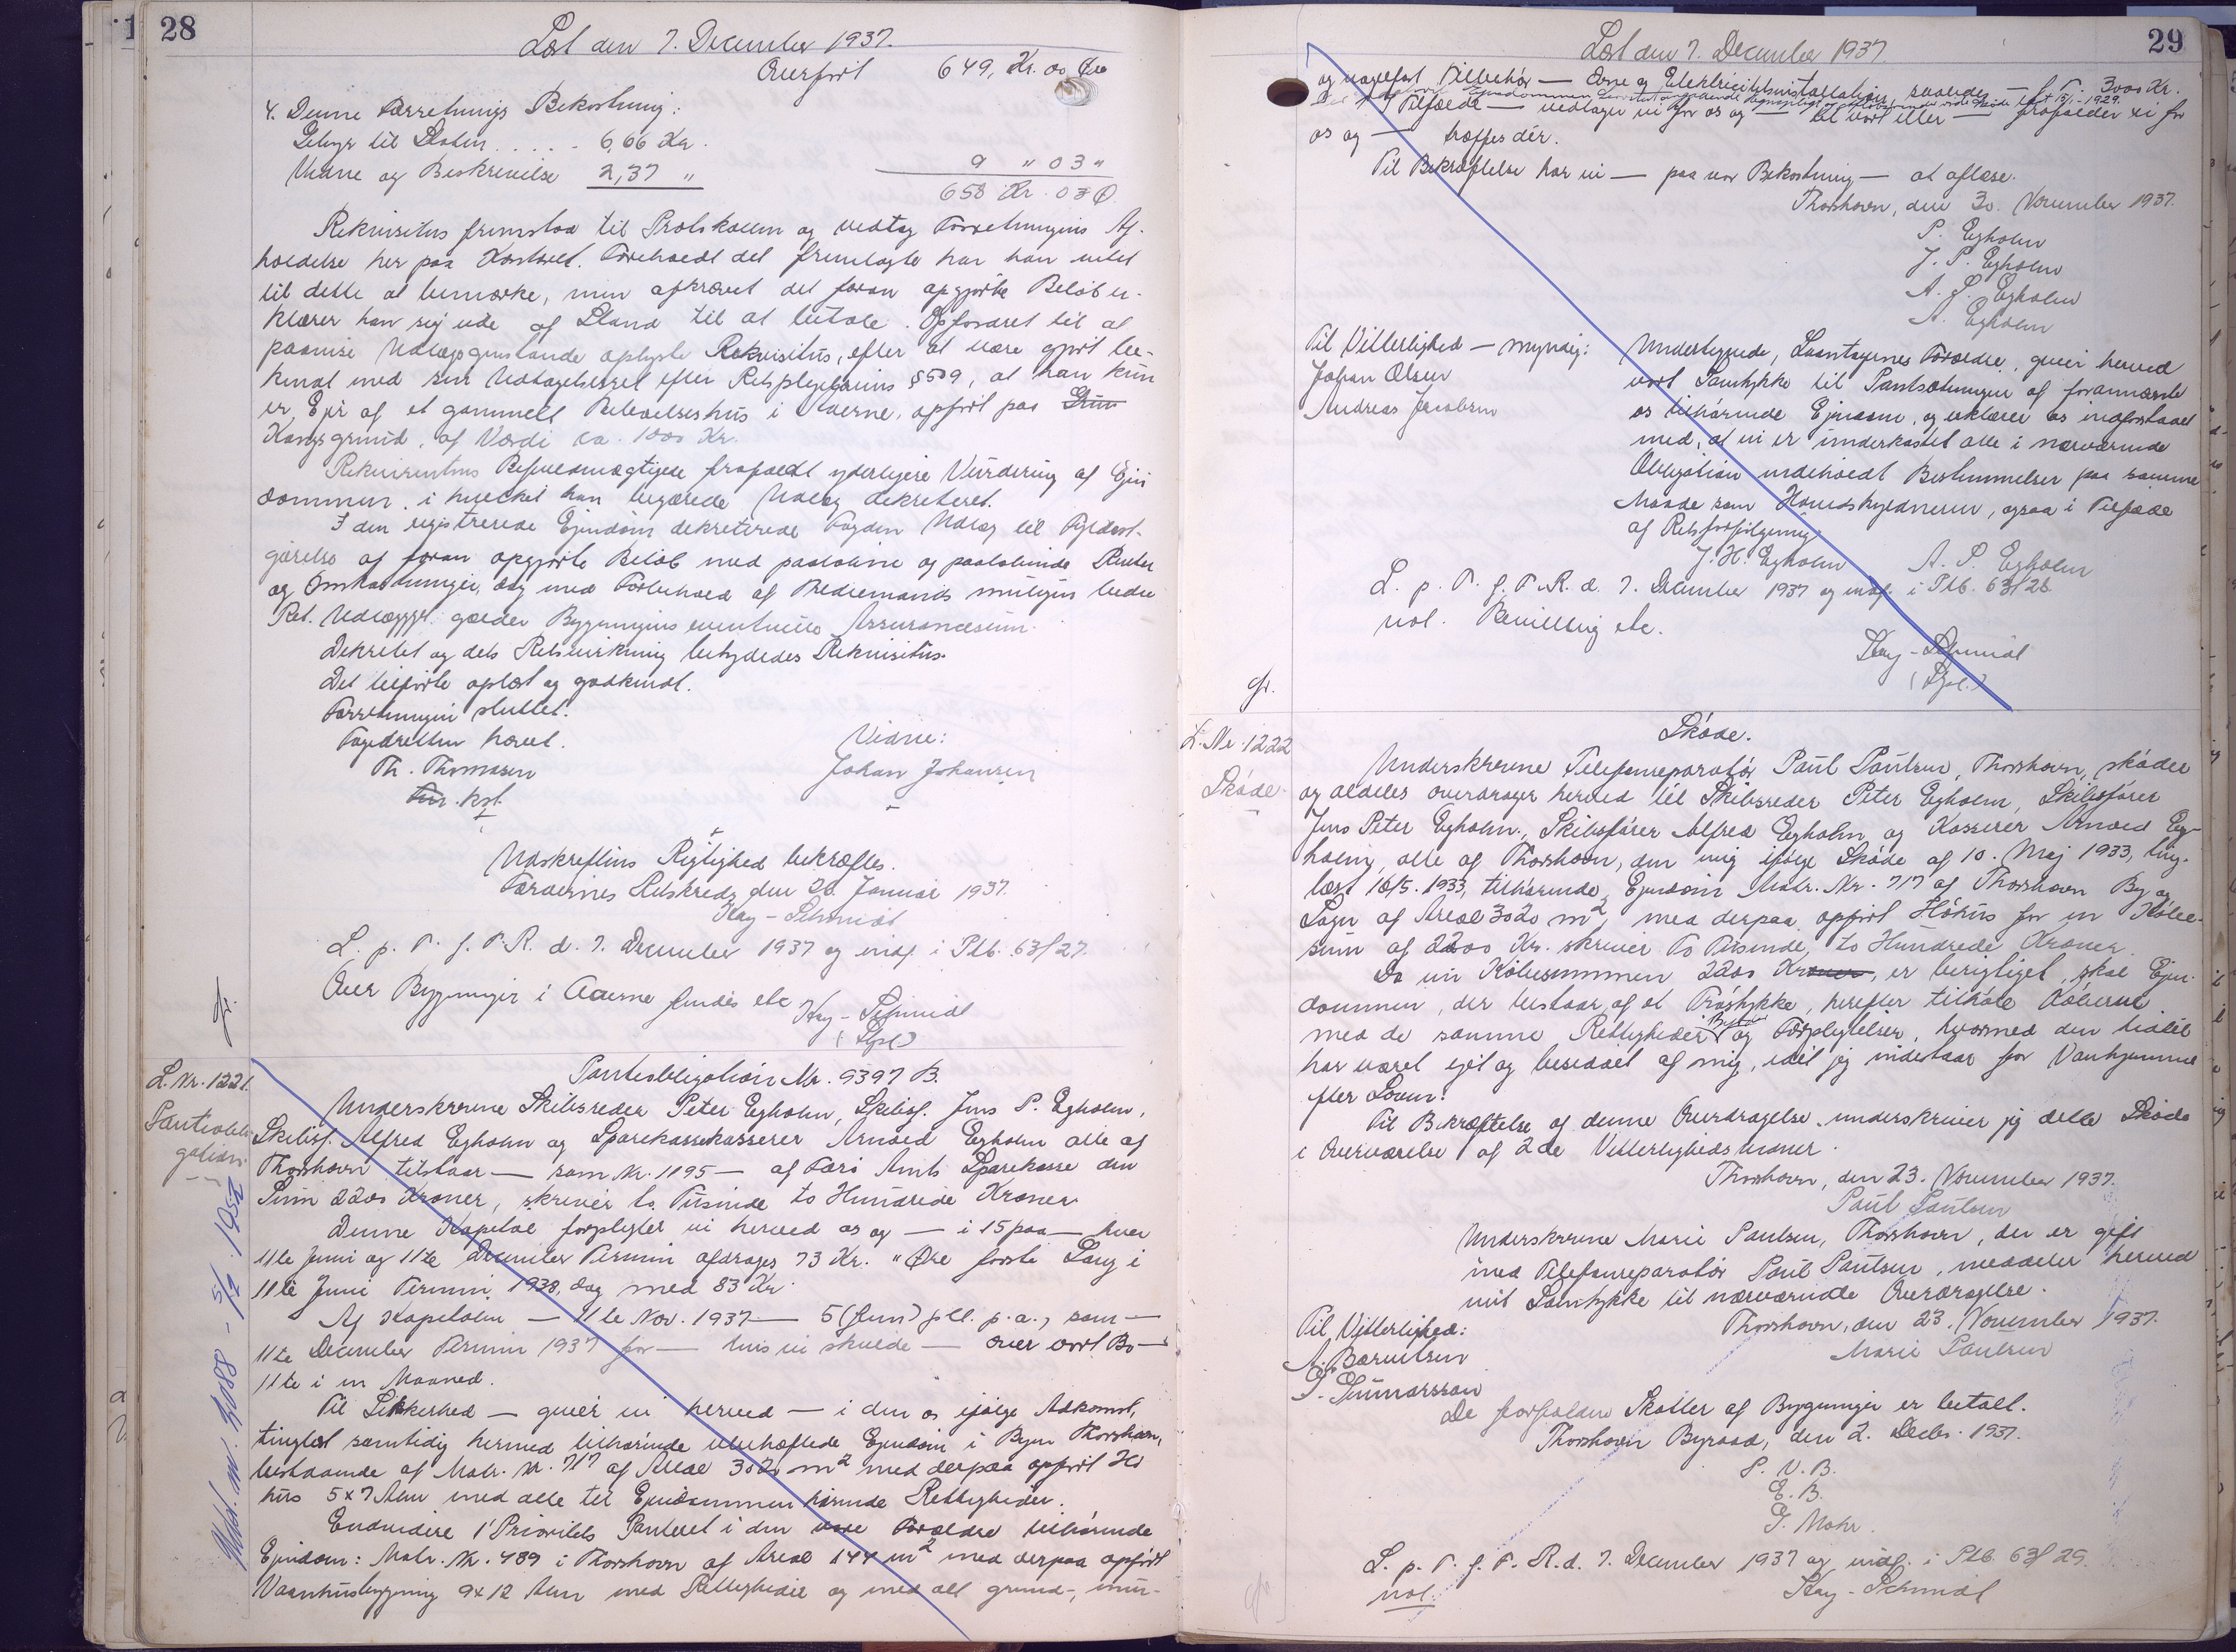 28
Læst den 7. December 1937.
Overført 649, Kr. 00 Øre
4. Denne Forretnings Bekostning:
Gebyr til Staten . . . . 6,66 Kr.
Vidne og Beskrivelse 2,37 "
9 " 03 "
658 Kr. 03 Ø.
Rekvisitus fremstod til Protokollen og vedtog Forretningens Af-
holdelse her paa Kontoret. Foreholdt det fremlagte har han intet
til dette at bemærke, men afkrævet det foran opgjorte Beløb er-
klærer han sig ude af Stand til at betale. Opfordret til at
paavise Udlægsgenstande oplyste Rekvisitus, efter at være gjort be-
kendt med sin Udtagelsesret efter Retsplejelovens § 509, at han kun
er Ejer af et gammelt Beboelseshus i Aaerne, opført paa Grun
Kongsgrund, af Værdi ca. 1000 Kr.
Rekvirentens Befuldmægtigede frafaldt yderligere Vurdering af Ejen
dommen, i hvilket han begærede Udlæg dekreteret.
I den registrerede Ejendom dekreterede Fogden Udlæg til Fyldest-
gørelse af foran opgjorte Beløb med paaløbne og paaløbende Renter
og Omkostninger, dog med Forbehold af Trediemands muligen bedre
Ret. Udlægget gælder Bygningens eventuelle Assurancesum.
Dekretet og dets Retsvirkning betydedes Rekvisitus.
Det tilførte oplæst og godkendt.
Forretningen sluttet.
Fogedretten hævet.
Vidne:
Th. Thomasen
Johan Johansen
kst.
Udskriftens Rigtighed bekræftes.
Færøernes Retskreds, den 26. Januar 1937.
Kay-Schmidt
L. p. T. f. F. R. d. 7. December 1937 og indf. i Ptb. 63/27.
Over Bygningen i Aaerne findes etc
Kay-Schmidt
L. Nr. 1221.
Pantobli-
gation.
Pantobligation Nr. 9397 B.
Underskrevne Skibsreder Peter Egholm, Skibsf. Jens P. Egholm,
Skibsf. Alfred Egholm og Sparekassekasserer Arnold Egholm alle af
Thorshavn tilstaar — som Nr. 1195 — af Færø Amts Sparekasse den
Sum 2200 Kroner, skriver to Tusinde to Hundrede Kroner
Denne Kapital forpligter vi herved os og — i 15 paa — hver
11te Juni og 11te December Termin afdrages 73 Kr. " Øre første Gang i
11te Juni Termin 1938, dog med 83 Kr.
Af Kapitalen — 11te Nov. 1937 — 5 (fem) pCt. p. a., som —
11te December Termin 1937 for — hvis vi skulde — over vort Bo —
11te i en Maaned.
Til Sikkerhed — giver vi herved — i den os ifølge Adkomst,
tinglæst samtidig hermed tilhørende ubehæftede Ejendom i Byen Thorshavn,
bestaaende af Matr. Nr. 717 af Areal 3020 m² med derpaa opført Hø
hus 5×7 Alen med alle til Ejendommen hørende Rettigheder.
Endvidere 1' Prioritets Panteret i den vore Forældre tilhørende
Ejendom: Matr. Nr. 489 i Thorshavn af Areal 144 m² med derpaa opført
Vaanhusbygning 9×12 Alen med Rettigheder og med alt grund-, mur-
29
Læst den 7. December 1937.
og nagelfast Tilbehør — Ovne og Elektricitetsinstallation, saavidt — f. T. 3000 Kr.
Tilfælde — vedtager vi for os og — til vort eller — frafalder vi for
os og — træffes dér.
Til Bekræftelse har vi — paa vor Bekostning — at aflæse.
Thorshavn, den 30. November 1937.
P. Egholm
J. P. Egholm
A. J. Egholm
A. Egholm
Til Vitterlighed — myndig:
Johan Olsen
Andreas Jacobsen
Undertegnede, Laantagernes Forældre, giver herved
vort Samtykke til Pantsætningen af forannævnte
os tilhørende Ejendom, og erklærer os indforstaaet
med, at vi er underkastet alle i nærværende
Obligation indeholdt Bestemmelser paa samme
Maade som Hovedskyldneren, ogsaa i Tilfælde
af Retsforfølgning
J. H. Egholm A. P. Egholm
L. p. T. f. F. R. d. 7. December 1937 og indf. i Ptb. 63/28.
not. Bevilling etc.
Kay-Schmidt
L. Nr. 1222
Skøde.
Skøde.
Underskrevne Telefonreparatør Paul Paulsen, Thorshavn, skøder
og aldeles overdrager herved til Skibsreder Peter Egholm, Skibsfører
Jens Peter Egholm, Skibsfører Alfred Egholm og Kasserer Arnold Eg-
holm, alle af Thorshavn, den mig ifølge Skøde af 10. Maj 1933, ting-
læst 16/5. 1933, tilhørende Ejendom Matr. Nr. 717 af Thorshavn By og
Sogn af Areal 3020 m² med derpaa opført Høhus for en Købe-
sum af 2200 Kr. skriver To Tusinde to Hundrede Kroner.
Da nu Købesummen 2200 Kroner, er berigtiget, skal Ejen-
dommen, der bestaar af et Trøstykke, herefter tilhøre Køberne
med de samme Rettigheder, Byrder og Forpligtelser, hvormed den hidtil
har været ejet og besiddet af mig, idet jeg indestaar for Vanhjemmel
efter Loven.
Til Bekræftelse af denne Overdragelse underskriver jeg dette Skøde
i Overværelse af 2de Vitterlighedsvidner.
Thorshavn, den 23. November 1937.
Paul Paulsen
Underskrevne Marie Paulsen, Thorshavn, der er gift
med Telefonreparatør Paul Paulsen, meddeler herved
mit Samtykke til nærværende Overdragelse.
Til Vitterlighed:
Thorshavn, den 23. November 1937.
Marie Paulsen
A. Bærentsen
De forfaldne Skatter af Bygningen er betalt.
Thorshavn Byraad, den 2. Decbr. 1937.
P. V. B.
E. B.
J. Mohr.
L. p. T. f. F. R. d. 7. December 1937 og indf. i Ptb. 63/29.
not.
Kay-Schmidt